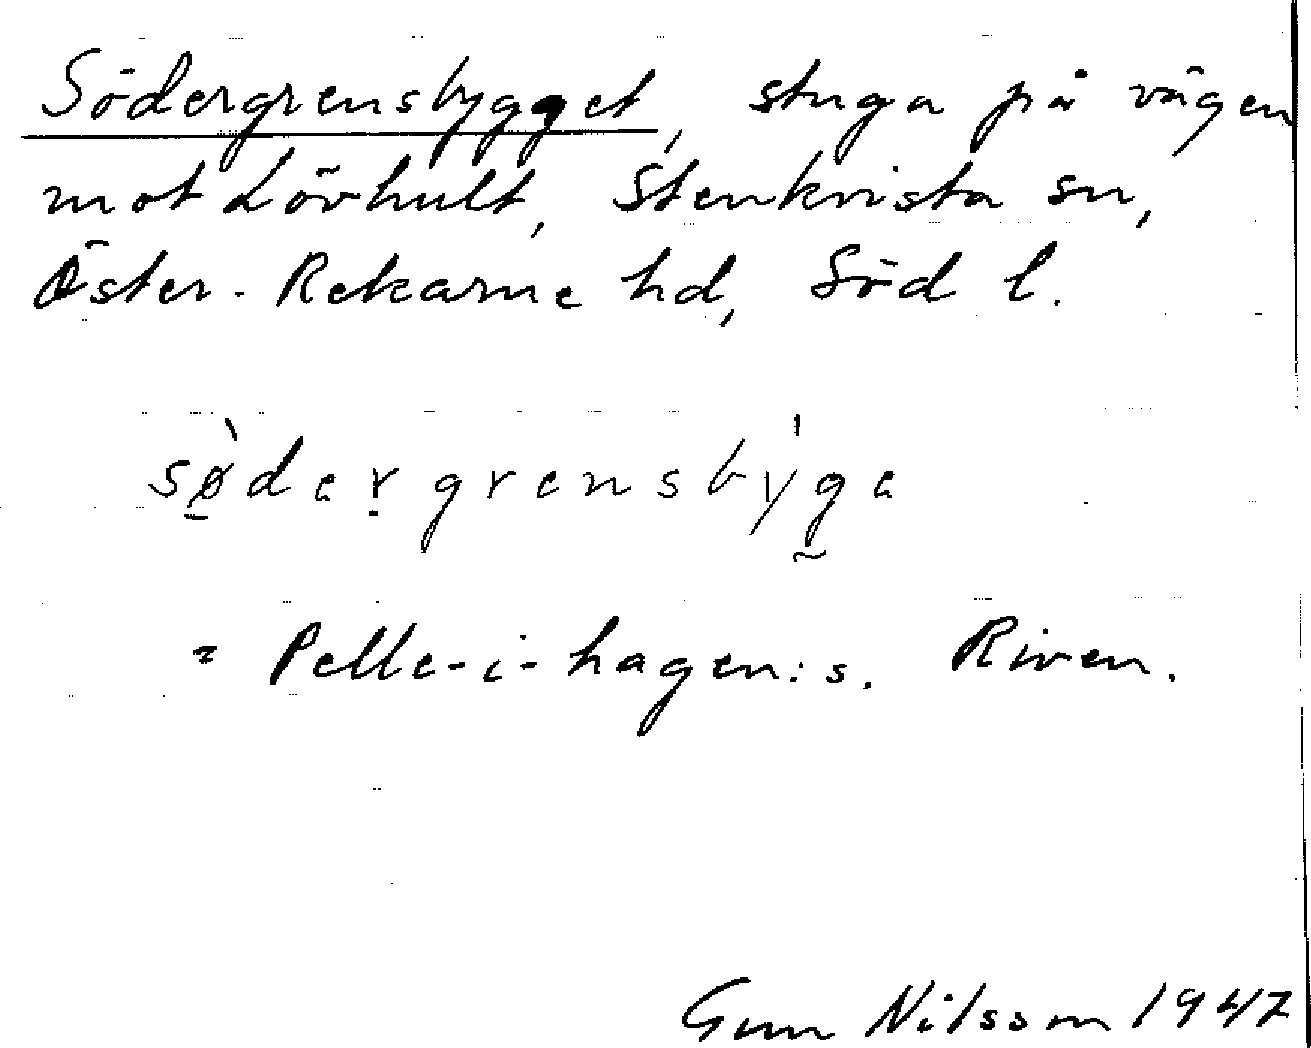 Södergrensbygget, stuga på vägen
mot Lövhult, Stenkvista sn,
Öster-Rekarne hd, Söd l.
sø̱̀dergrensby̍ge
= Pelle-i-hagen:s. Riven.
Gun Nilsson 1947